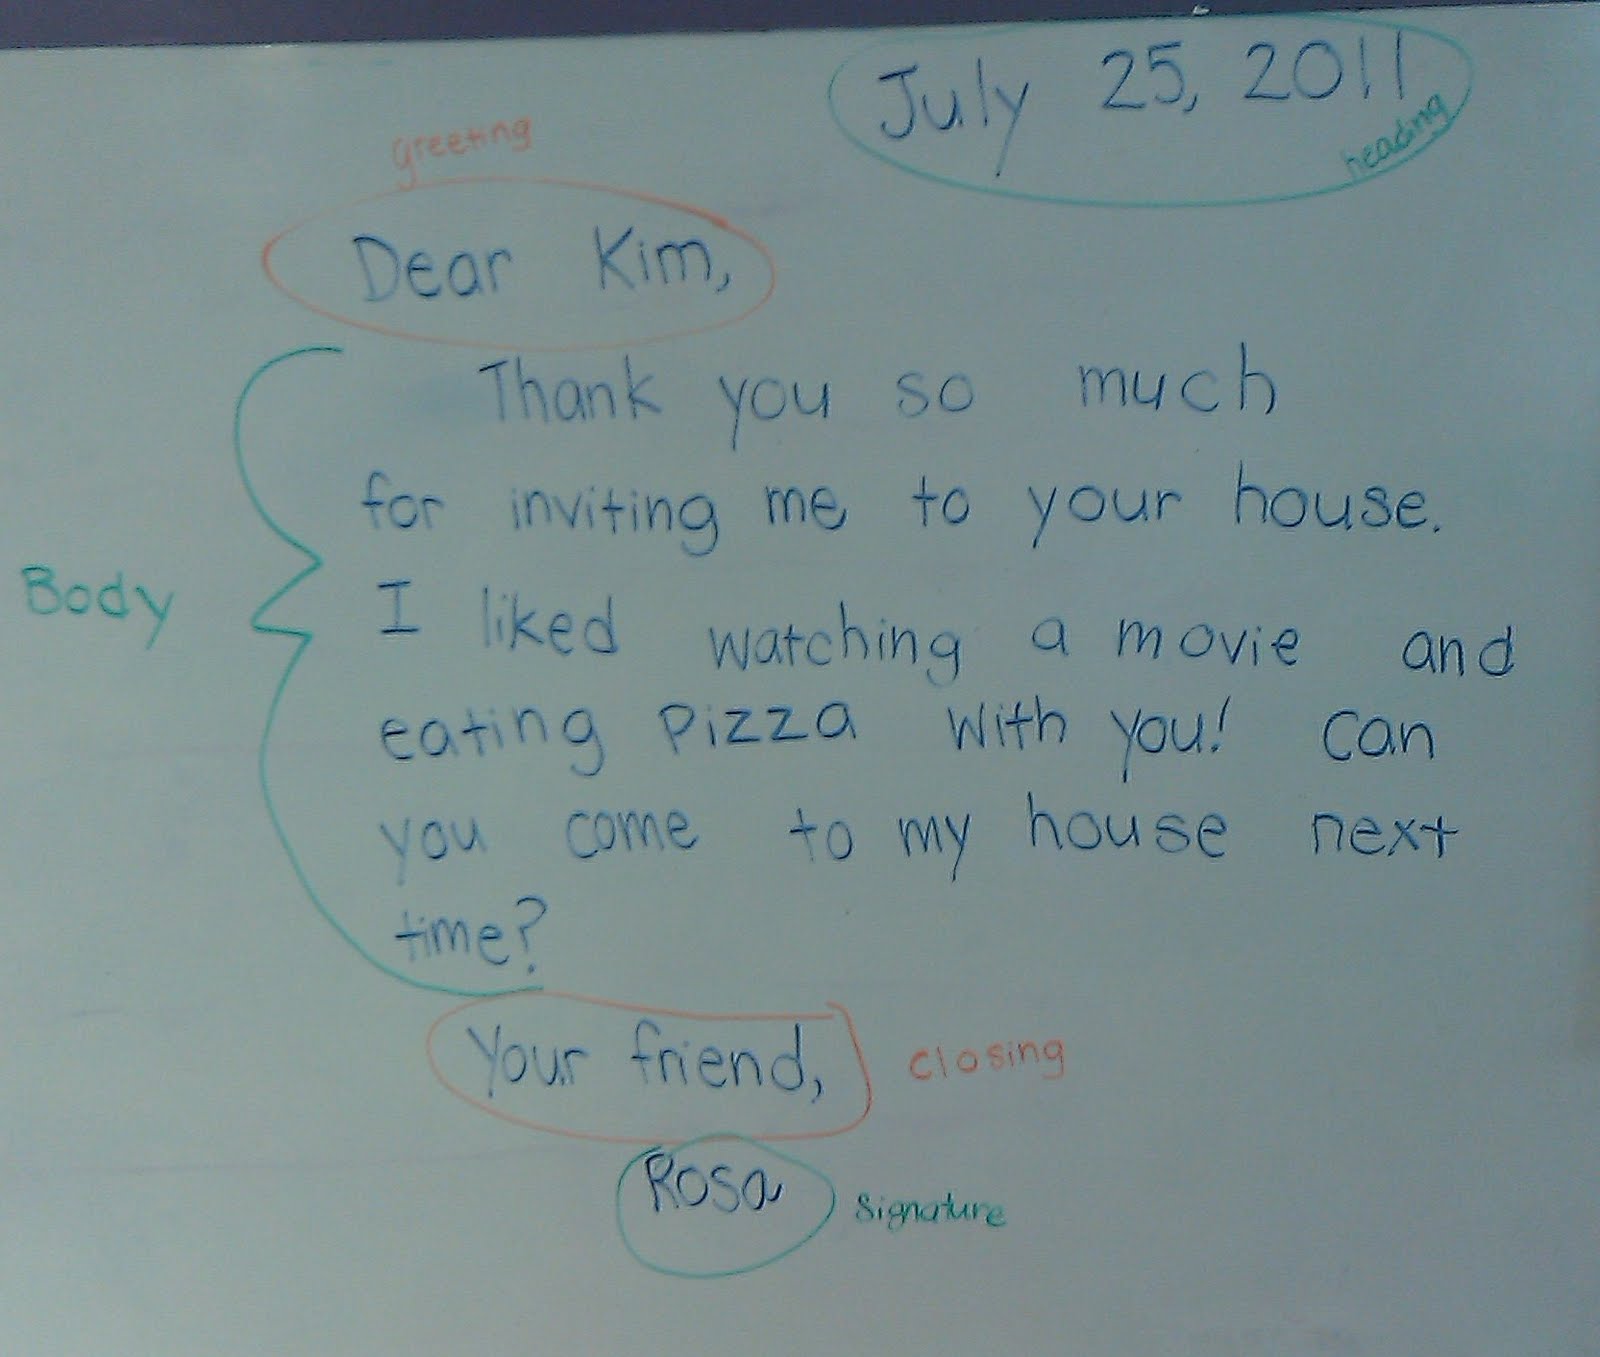 July 25, 2011
heading
greeting
Dear Kim,
Thank you so much
for inviting me to your house.
I liked watching a movie and
eating pizza with you! Can
you come to my house next
time?
Body
Your friend,
closing
Rosa
Signature